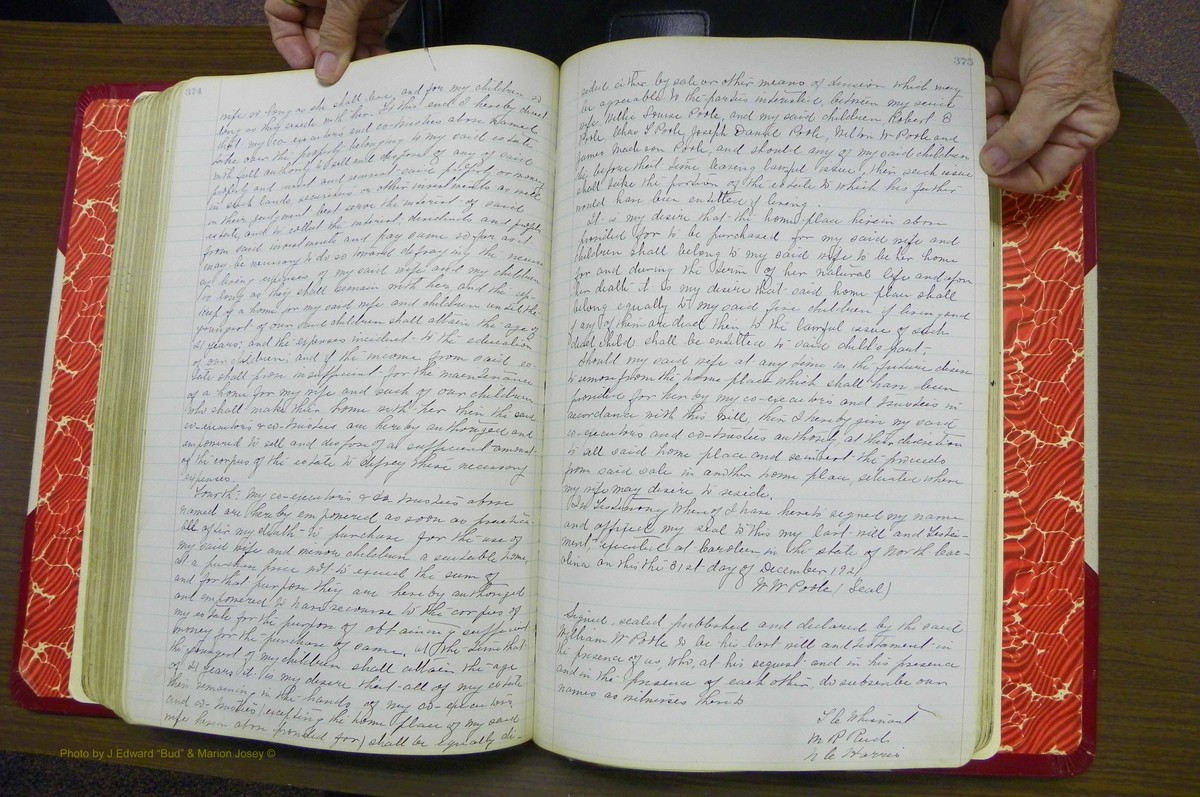 374
wife so long as she shall live, and for my children so
long as they reside with her. To that end I hereby direct
that my co-executors and co-trustees above named
take over the property belonging to my said estate
with full authority to sell and dispose of any of said
property and invest and reinvest said property or money
in such lands, securities or other investments as will
in their judgment best serve the interest of said
estate, and to collect the interest, dividends and profits
from said investments and pay same so far as it
may be necessary to do so toward defraying the neces-
ary living expenses of my said wife and my children
so long as they shall remain with her, and the up-
keep of a home for my said wife and children until the
youngest of our said children shall attain the age of
21 years; and the expenses incident to the education
of our children; and if the income from said es-
tate shall prove insufficient for the maintenance
of a home for my wife and such of our children
who shall make their home with her then the said
co-executors & co-trustees are hereby authorized and
empowered to sell and dispose of a sufficient amount
of the corpus of the estate to defray these necessary
expenses.
Fourth: My co-executors & co-trustees above
named are hereby empowered as soon as practica-
ble after my death to purchase for the use of
my said wife and minor children a suitable home,
at a purchase price not to exceed the sum of
and for that purpose they are hereby authorized
and empowered to have recourse to the corpus of
my estate for the purpose of obtaining sufficient
money for the purchase of same. at the time that
the youngest of my children shall attain the age
of 21 years it is my desire that all of my estate
then remaining in the hands of my co-executors
and co-trustees (excepting the home place of my said
wife herein above provided for) shall be equally di-
375
vided either by sale or other means of division which may
be agreeable to the parties interested, between my said
wife Willie Louise Poole, and my said children Robert B
Poole, Chas L Poole, Joseph Daniel Poole, Wilton W Poole and
James Madison Poole, and should any of my said children
die before that time leaving lawful issue, then such issue
shall take the portion of the estate to which his father
would have been entitled if living.
It is my desire that the home place herein above
provided for to be purchased for my said wife and
children shall belong to my said wife to be her home
for and during the term of her natural life and upon
her death it is my desire that said home place shall
belong equally to my said five children if living and
if any of them are dead then to the lawful issue of such
dead child shall be entitled to said child's part.
Should my said wife at any time in the future desire
to remove from the home place which shall have been
provided for her by my co-executors and trustees in
accordance with this Will, then I hereby give my said
co-executors and co-trustees authority at their discretion
to sell said home place and reinvest the proceeds
from said sale in another home place, situated where
my wife may desire to reside.
In Testimony Whereof I have hereto signed my name
and affixed my seal to this my last will and Testa-
ment executed at Caroleen in the state of North Car-
olina on this the 31st day of December 1921
W W Poole (Seal)
Signed, sealed published and declared by the said
William W Poole to be his last will and testament in
the presence of us who, at his request and in his presence
and in the presence of each other, do subscribe our
names as witnesses hereto
M R Reid
Harris
Photo by J Edward "Bud" & Marion Josey ©